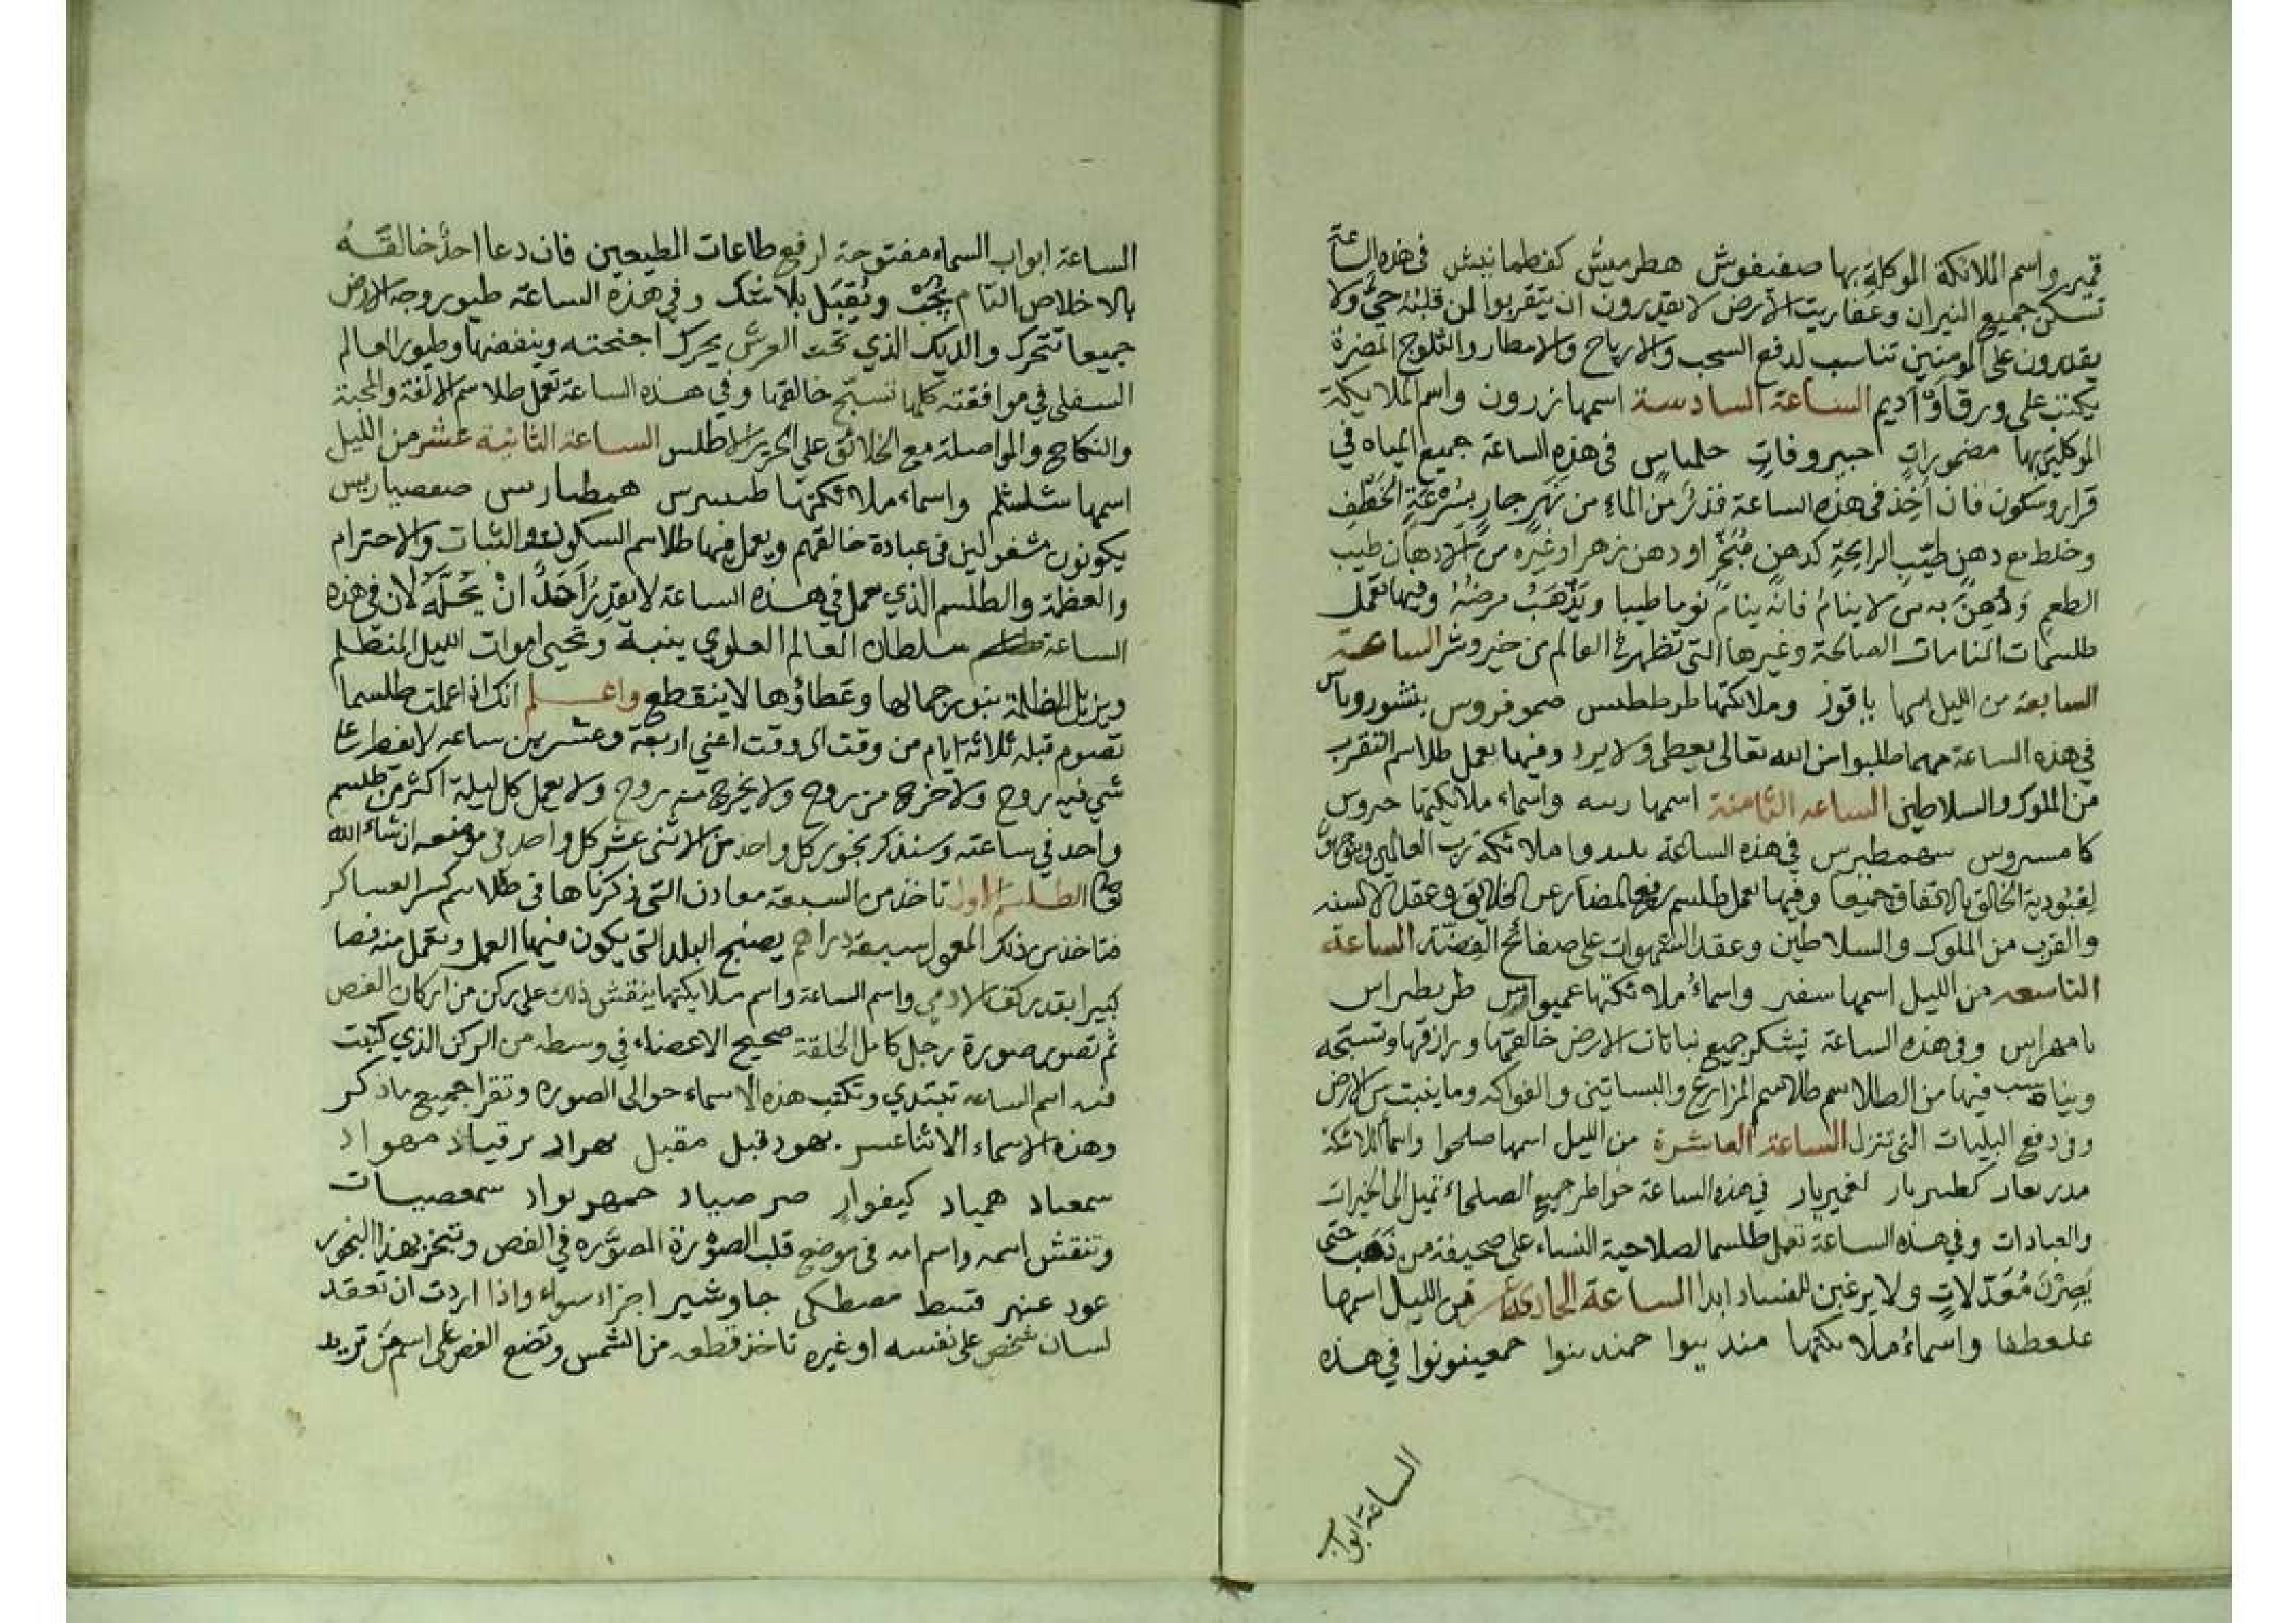 قمير واسم الملائكة الموكلة بها صفيفوش هطرميش كفطمانيش في هذه الساعة
تسكن جميع النيران وعفاريت الارض لا يقدرون ان يتقربوا لمن قلبه حي ولا
يقدرون على المومنين تناسب لدفع السحب والارياح والامطار والثلوج المضرة
يكتب على ورق او اديم الساعة السادسة اسمها نزرون واسم الملايكة
الموكلين بها في هذه الساعة جميع المياه في
قرار وسكون فان اخذ في هذه الساعة قدر من الماء من نهر جار بسرعة
وخلط مع دهن طيب الرايحة كدهن او دهن زهر او غيره من الادهان طيب
الطعم ودهن به من لا ينام فانه ينام نوما طيبا ويذهب مرضه وفيها تعمل
طلسمات المنامات الصالحة وغيرها التي تظهر في العالم من خير وشر الساعة
السابعة من الليل اسمها باقوز وملائكتها طرططس صموفروس
في هذه الساعة مهما طلبوا من الله تعالى يعطى ولا يرد وفيها يعمل طلاسم التقرب
من الملوك والسلاطين الساعه الثامنة اسمها رسه واسماء ملايكتها حروس
كا مسروس سهمطبرس في هذه الساعة ملائكة رب العالمين
لعبودية الخالق بالاتفاق جميعا وفيها تعمل طلسم رفع المضار عن الخلائق وعقد الالسنه
والقرب من الملوك والسلاطين وعقد الشهوات على صفائح الفضة الساعة
التاسعه من الليل اسمها سفير واسماء ملائكتها طربطراس
بامهراس وفي هذه الساعة تشكر جميع نباتات الارض خالقها ورازقها وتسبحه
ويناسب فيها من الطلاسم طلاسم المزارع والبساتين والفواكه وما ينبت من الارض
وفي دفع البليات التي تنزل الساعة العاشرة من الليل اسمها صلحوا واسماء الملائكة
كطربار لغميربار في هذه الساعة خواطر جميع الصلحاء تميل الى الخيرات
والعبادات وفي هذه الساعة تعمل طلسما لصلاحية النساء على صحيفة من ذهب حتى
يصرن ولا يرغبن للفساد ابدا الساعة الحادي عشر من الليل اسمها
علعطفا واسماء ملائكتها حمعينونوا في هذه
الساعة ابواب
الساعة ابواب السماء مفتوحة لرفع طاعات المطيعين فان دعا احد خالقه
بالاخلاص التام يجب ويقبل بلا شك وفي هذه الساعة طيور وجه الارض
جميعا تتحرك والديك الذي تحت العرش يحرك اجنحته وينفضها وطيور العالم
السفلي في موافقته كلها تسبح خالقها وفي هذه الساعة تعمل طلاسم الالفة والمحبة
والنكاح والمواصلة مع الخلائق على الحرير الاطلس الساعة الثانية عشر من الليل
اسمها شلشلم واسماء ملائكتها همطارس صعصياريس
يكونون مشغولين في عبادة خالقهم ويعمل فيها طلاسم السكون والثبات والاحترام
والعظمة والطلسم الذي تعمل في هذه الساعة لا يقدر احد ان يحله لان في هذه
الساعة سلطان العالم العلوي ينبه وتحيى اموات الليل المنظلم
ويزيل الظلمة بنور جمالها وعطاؤها لا ينقطع واعلم انك اذا عملت طلسما
تصوم قبله ثلاثة ايام من وقت الى وقت اعني اربعة وعشرين ساعه لا تفطر على
شي فيه روح ولا خرج من روح ولا يخرج منه روح ولا تعمل كل ليلة اكثر من طلسم
واحد في ساعته وسنذكر بخور كل واحد من الاثنى عشر كل واحد في موضعه ان شاء الله
الطلسم الاول تاخذ من السبعة معادن التي ذكرناها في طلاسم كسر العساكر
فتاخذ من ذلك المعمول سبعة دراهم بصنج البلد التي يكون فيها العمل وتعمل منه فصا
كبيرا بقدر كف الادمي واسم الساعة واسم ملايكتها ينقش ذلك على ركن من اركان الفص
ثم تصور صورة رجل كامل الخلقة صحيح الاعضاء في وسطه من الركن الذي كتبت
فيه اسم الساعه تبتدي وتكتب هذه الاسماء حوالى الصوره وتقرا جميع ما ذكر
وهذه الاسماء الاثنا عشر يهود قبل مقبل بهراد برقياد مهواد
سمعباد همياد كيفوار صرصياد سمعصيات
وتنقش اسمه واسم امه في موضع قلب الصورة المصوره في الفص وتبخر بهذا البخور
عود عنبر قسط مصطكى جاوشير اجزاء سواء واذا اردت ان تعقد
لسان شخص على نفسه او غيره تاخذ قطعه من الشمس وتضع الفص على اسم من تريد